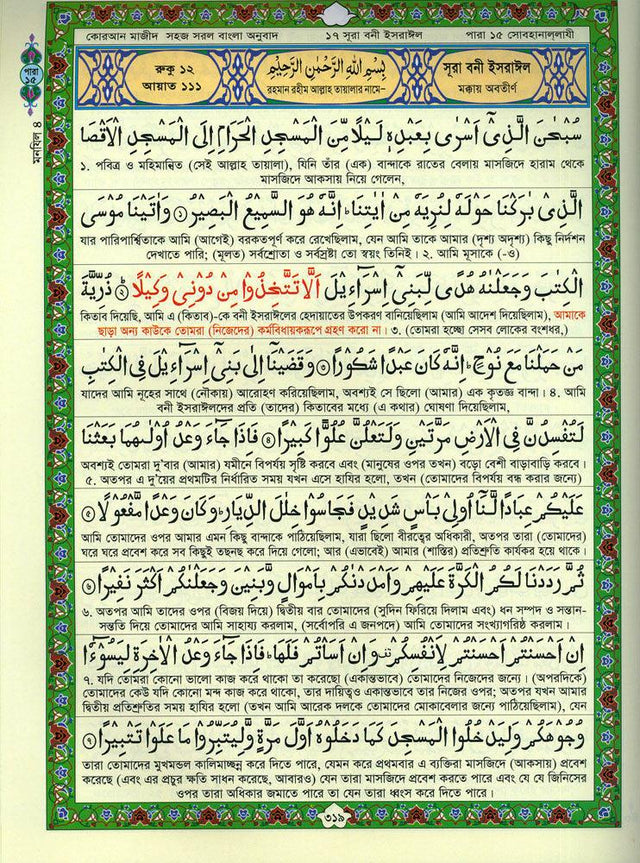 কোরআন মাজীদ সহজ সরল বাংলা অনুবাদ ১৭ সূরা বনী ইসরাঈল পারা ১৫ সোবহানাল্লাযী
পারা ১৫
মনযিল ৪
রুকু ১২
আয়াত ১১১
بِسْمِ اللهِ الرَّحْمٰنِ الرَّحِيْمِ
রহমান রহীম আল্লাহ তায়ালার নামে-
সূরা বনী ইসরাঈল
মক্কায় অবতীর্ণ
سُبْحٰنَ الَّذِيْٓ اَسْرٰى بِعَبْدِهٖ لَيْلًا مِّنَ الْمَسْجِدِ الْحَرَامِ اِلَى الْمَسْجِدِ الْاَقْصَا
১. পবিত্র ও মহিমান্বিত (সেই আল্লাহ তায়ালা), যিনি তাঁর (এক) বান্দাকে রাতের বেলায় মাসজিদে হারাম থেকে
মাসজিদে আকসায় নিয়ে গেলেন,
الَّذِيْ بٰرَكْنَا حَوْلَهٗ لِنُرِيَهٗ مِنْ اٰيٰتِنَا ۚ اِنَّهٗ هُوَ السَّمِيْعُ الْبَصِيْرُ ۝١ وَاٰتَيْنَا مُوْسَى
যার পারিপার্শ্বিকতাকে আমি (আগেই) বরকতপূর্ণ করে রেখেছিলাম, যেন আমি তাকে আমার (দৃশ্য অদৃশ্য) কিছু নিদর্শন
দেখাতে পারি; (মূলত) সর্বশ্রোতা ও সর্বস্রষ্টা তো স্বয়ং তিনিই। ২. আমি মূসাকে (-ও)
الْكِتٰبَ وَجَعَلْنٰهُ هُدًى لِّبَنِيْٓ اِسْرَآءِيْلَ اَلَّا تَتَّخِذُوْا مِنْ دُوْنِيْ وَكِيْلًا ۝٢ ذُرِّيَّةَ
কিতাব দিয়েছি, আমি এ (কিতাব)-কে বনী ইসরাঈলের হেদায়াতের উপকরণ বানিয়েছিলাম (আমি আদেশ দিয়েছিলাম), আমাকে
ছাড়া অন্য কাউকে তোমরা (নিজেদের) কর্মবিধায়করূপে গ্রহণ করো না। ৩. (তোমরা হচ্ছো সেসব লোকের বংশধর,)
مَنْ حَمَلْنَا مَعَ نُوْحٍ ۚ اِنَّهٗ كَانَ عَبْدًا شَكُوْرًا ۝٣ وَقَضَيْنَآ اِلٰى بَنِيْٓ اِسْرَآءِيْلَ فِي الْكِتٰبِ
যাদের আমি নূহের সাথে (নৌকায়) আরোহণ করিয়েছিলাম, অবশ্যই সে ছিলো (আমার) এক কৃতজ্ঞ বান্দা। ৪. আমি
বনী ইসরাঈলদের প্রতি (তাদের) কিতাবের মধ্যে (এ কথার) ঘোষণা দিয়েছিলাম,
لَتُفْسِدُنَّ فِي الْاَرْضِ مَرَّتَيْنِ وَلَتَعْلُنَّ عُلُوًّا كَبِيْرًا ۝٤ فَاِذَا جَآءَ وَعْدُ اُوْلٰىهُمَا بَعَثْنَا
অবশ্যই তোমরা দু'বার (আমার) যমীনে বিপর্যয় সৃষ্টি করবে এবং (মানুষের ওপর তখন) বড়ো বেশী বাড়াবাড়ি করবে।
৫. অতপর এ দু'য়ের প্রথমটির নির্ধারিত সময় যখন এসে হাযির হলো, তখন (তোমাদের বিপর্যয় বন্ধ করার জন্যে)
عَلَيْكُمْ عِبَادًا لَّنَآ اُولِيْ بَاْسٍ شَدِيْدٍ فَجَاسُوْا خِلٰلَ الدِّيَارِ ۚ وَكَانَ وَعْدًا مَّفْعُوْلًا ۝٥
আমি তোমাদের ওপর আমার এমন কিছু বান্দাকে পাঠিয়েছিলাম, যারা ছিলো বীরত্বের অধিকারী, অতপর তারা (তোমাদের)
ঘরে ঘরে প্রবেশ করে সব কিছুই তছনছ করে দিয়ে গেলো; আর (এভাবেই) আমার (শাস্তির) প্রতিশ্রুতি কার্যকর হয়ে থাকে।
ثُمَّ رَدَدْنَا لَكُمُ الْكَرَّةَ عَلَيْهِمْ وَاَمْدَدْنٰكُمْ بِاَمْوَالٍ وَّبَنِيْنَ وَجَعَلْنٰكُمْ اَكْثَرَ نَفِيْرًا ۝٦
৬. অতপর আমি তাদের ওপর (বিজয় দিয়ে) দ্বিতীয় বার তোমাদের (সুদিন ফিরিয়ে দিলাম এবং) ধন সম্পদ ও সন্তান-
সন্ততি দিয়ে তোমাদের আমি সাহায্য করলাম, (সর্বোপরি এ জনপদে) আমি তোমাদের সংখ্যাগরিষ্ঠ করলাম।
اِنْ اَحْسَنْتُمْ اَحْسَنْتُمْ لِاَنْفُسِكُمْ وَاِنْ اَسَاْتُمْ فَلَهَا ۚ فَاِذَا جَآءَ وَعْدُ الْاٰخِرَةِ لِيَسُوْٓءٗا
৭. যদি তোমরা কোনো ভালো কাজ করে থাকো তা করেছো (একান্তভাবে) তোমাদের নিজেদের জন্যে। (অপরদিকে)
তোমাদের কেউ যদি কোনো মন্দ কাজ করে থাকো, তার দায়িত্বও একান্তভাবে তার নিজের ওপর; অতপর যখন আমার
দ্বিতীয় প্রতিশ্রুতির সময় হাযির হলো (তখন আমি আরেক দলকে তোমাদের মোকাবেলার জন্যে পাঠিয়েছিলাম), যেন
وُجُوْهَكُمْ وَلِيَدْخُلُوا الْمَسْجِدَ كَمَا دَخَلُوْهُ اَوَّلَ مَرَّةٍ وَّلِيُتَبِّرُوْا مَا عَلَوْا تَتْبِيْرًا ۝٧
তারা তোমাদের মুখমন্ডল কালিমাচ্ছন্ন করে দিতে পারে, যেমন করে প্রথমবার এ ব্যক্তিরা মাসজিদে (আকসায়) প্রবেশ
করেছে (এবং এর প্রচুর ক্ষতি সাধন করেছে, আবারও) যেন তারা মাসজিদে প্রবেশ করতে পারে এবং যে যে জিনিসের
ওপর তারা অধিকার জমাতে পারে তা যেন তারা ধ্বংস করে দিতে পারে।
৩১৯